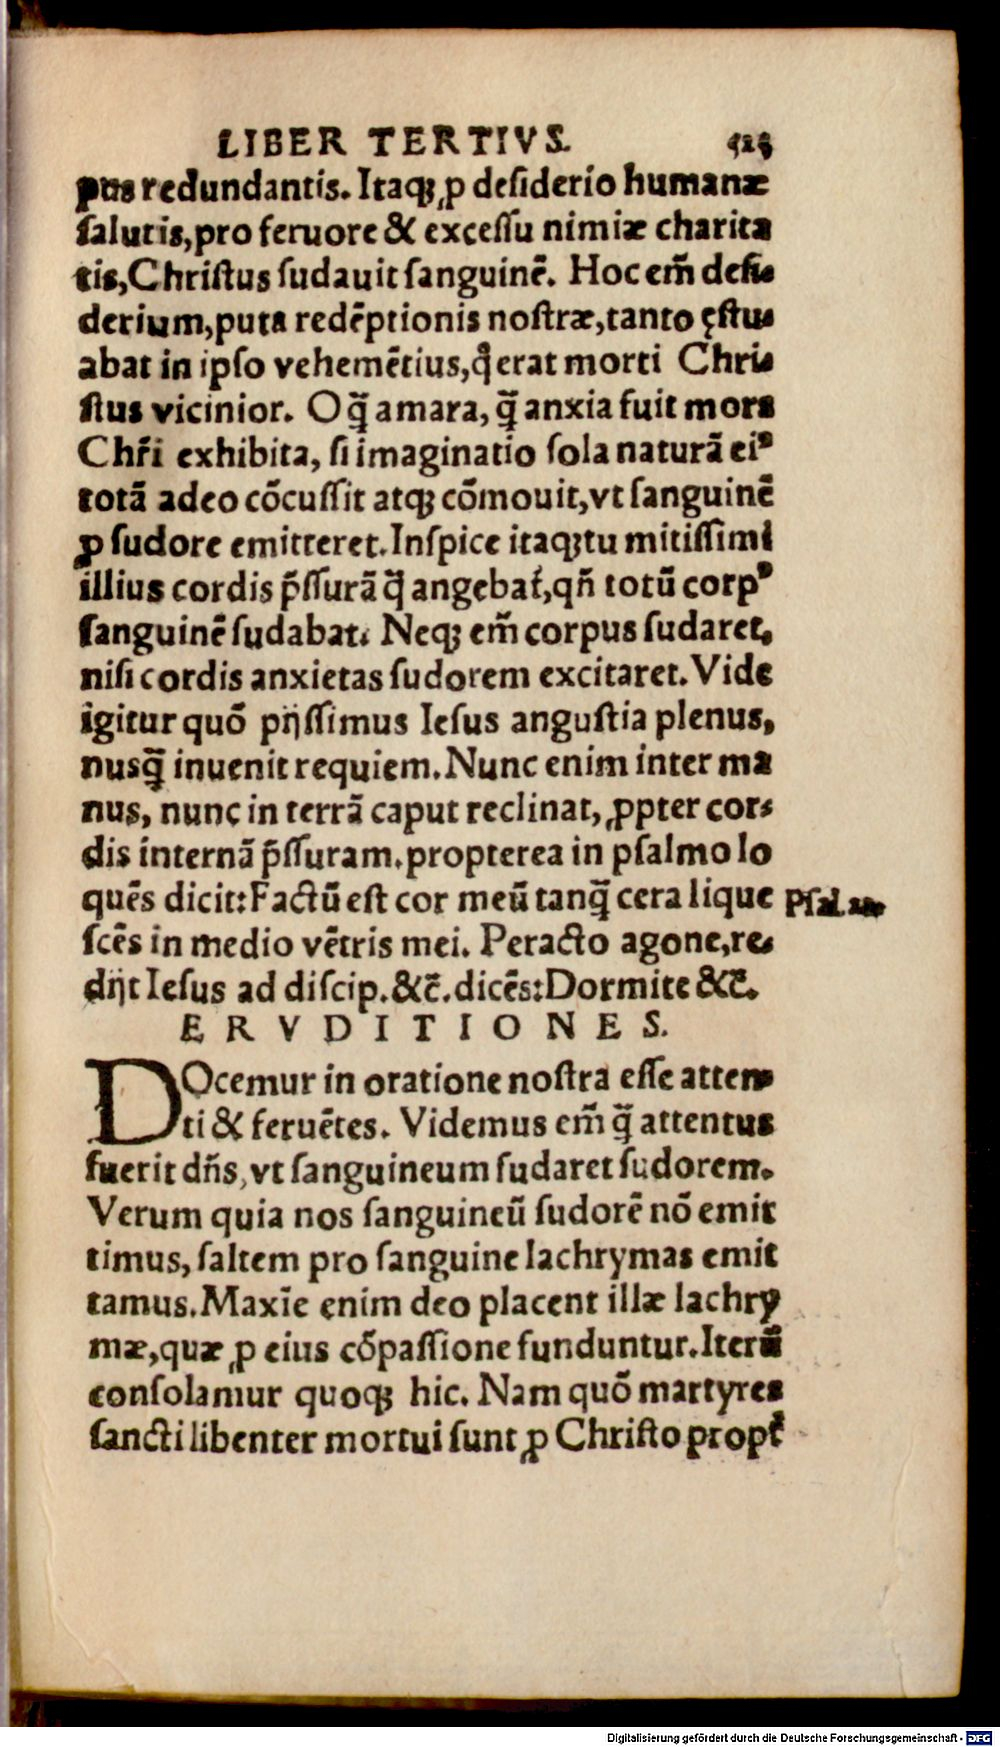 LIBER TERTIVS.
pus redundantis. Itaqꝫ ꝓ desiderio humanæ
ſalutis, pro feruore & exceſſu nimiæ charita
tis, Chriſtus ſudauit ſanguinē. Hoc em̄ deſi-
derium, puta redēptionis noſtræ, tanto ęſtu-
abat in ipſo vehemētius, q̊ erat morti Chri-
ſtus vicinior. O q̄ amara, q̄ anxia fuit mors
Chr̄i exhibita, ſi imaginatio ſola naturā eiꝰ
totā adeo cōcuſſit atqꝫ cōmouit, vt ſanguinē
ꝓ ſudore emitteret. Inſpice itaqꝫ tu mitiſſimi
illius cordis p̄ſſurā q̄ angebat᷑, qn̄ totū corpꝰ
ſanguinē ſudabat. Neqꝫ em̄ corpus ſudaret,
niſi cordis anxietas ſudorem excitaret. Vide
igitur quō pijſſimus Ieſus anguſtia plenus,
nusq̄ inuenit requiem. Nunc enim inter ma
nus, nunc in terrā caput reclinat, ꝓpter cor-
dis internā p̄ſſuram. propterea in pſalmo lo
quēs dicit: Factū eſt cor meū tanq̄ cera lique
ſcēs in medio vētris mei. Peracto agone, re-
dijt Ieſus ad diſcip. &c̄. dicēs: Dormite &c̄.
Pſal.
ERVDITIONES.
DOcemur in oratione noſtra eſſe atten-
ti & feruētes. Videmus em̄ q̄ attentus
fuerit dn̄s, vt ſanguineum ſudaret ſudorem.
Verum quia nos ſanguineū ſudorē nō emit
timus, ſaltem pro ſanguine lachrymas emit
tamus. Maxīe enim deo placent illæ lachry
mæ, quæ ꝓ eius cōpaſſione funduntur. Iterū
conſolamur quoqꝫ hic. Nam quō martyres
ſancti libenter mortui ſunt ꝓ Chriſto propt᷑
Digitalisierung gefördert durch die Deutsche Forschungsgemeinschaft - DFG